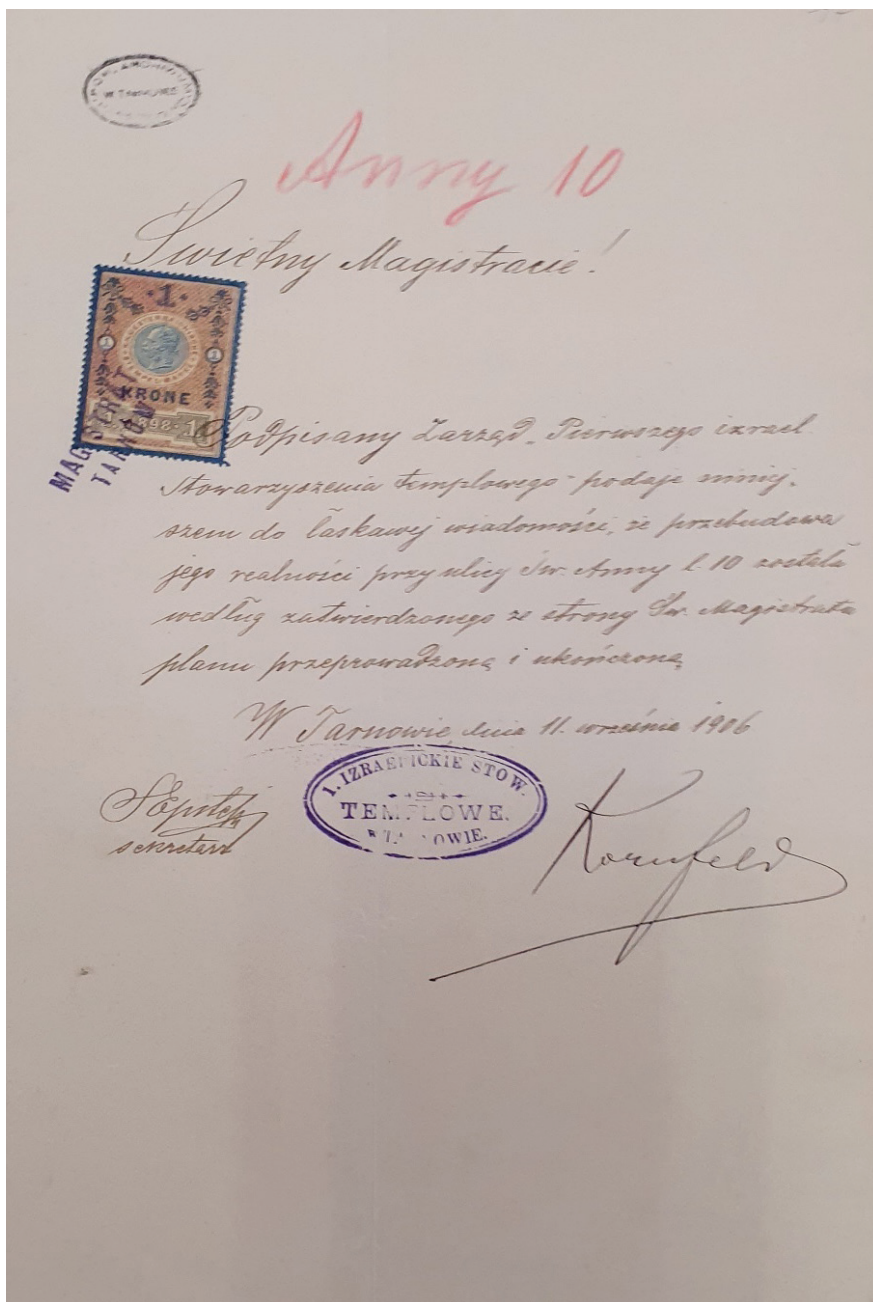 W TARNOWIE
Anny 10
Świetny Magistracie!
1
1 1
KRONE
1898 1
MAGISTRAT
TARNÓW
Podpisany Zarząd „Pierwszego izrael.
Stowarzyszenia templowego" podaje niniej-
szem do łaskawej wiadomości, że przebudowa
jego realności przy ulicy Św. Anny l. 10 została
według zatwierdzonego ze strony Św. Magistratu
planu przeprowadzoną i ukończoną
W Tarnowie, dnia 11. września 1906
1. IZRAELICKIE STOW.
TEMPLOWE.
W TARNOWIE.
sekretarz
Kornfeld